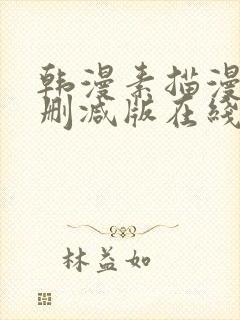 韩漫素描漫
删减版在线
林益如